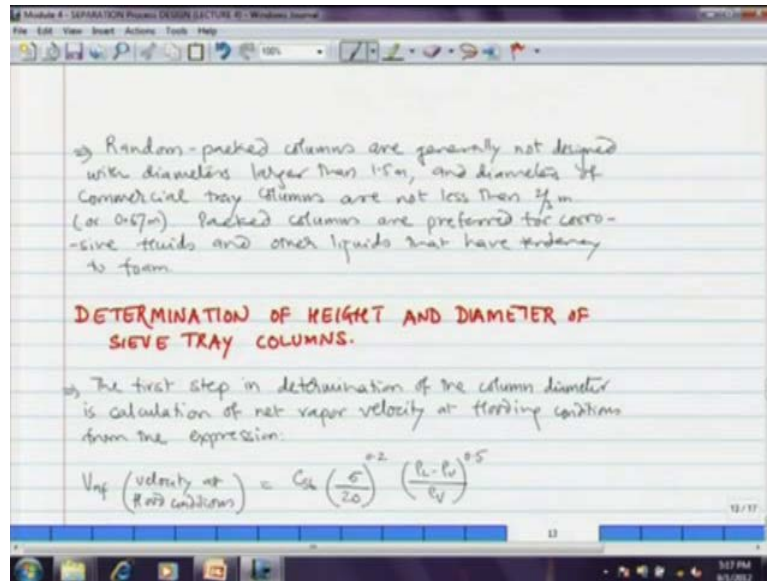 Module 4 - SEPARATION Process DESIGN (LECTURE 4) - Windows Journal
File Edit View Insert Actions Tools Help
100%
⇒ Random-packed columns are generally not designed
with diameters larger than 1.5 m, and diameters of
commercial tray columns are not less than 2/3 m
(or 0.67m) Packed columns are preferred for corro-
-sive fluids and other liquids that have tendency
to foam
DETERMINATION OF HEIGHT AND DIAMETER OF
SIEVE TRAY COLUMNS.
⇒ The first step in determination of the column diameter
is calculation of net vapor velocity at flooding conditions
from the expression:
Vnf (velocity at flood conditions) = Csb (σ/20)^0.2 ((ρL-ρV)/ρV)^0.5
13/17
13
5:17 PM